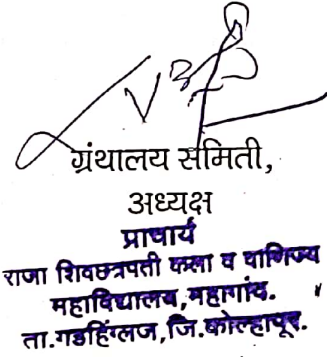 ग्रंथालय समिती,
अध्यक्ष
प्राचार्य
राजा शिवछत्रपती कला व वाणिज्य
महाविद्यालय,महागांव.
ता.गडहिंग्लज,जि.कोल्हापूर.